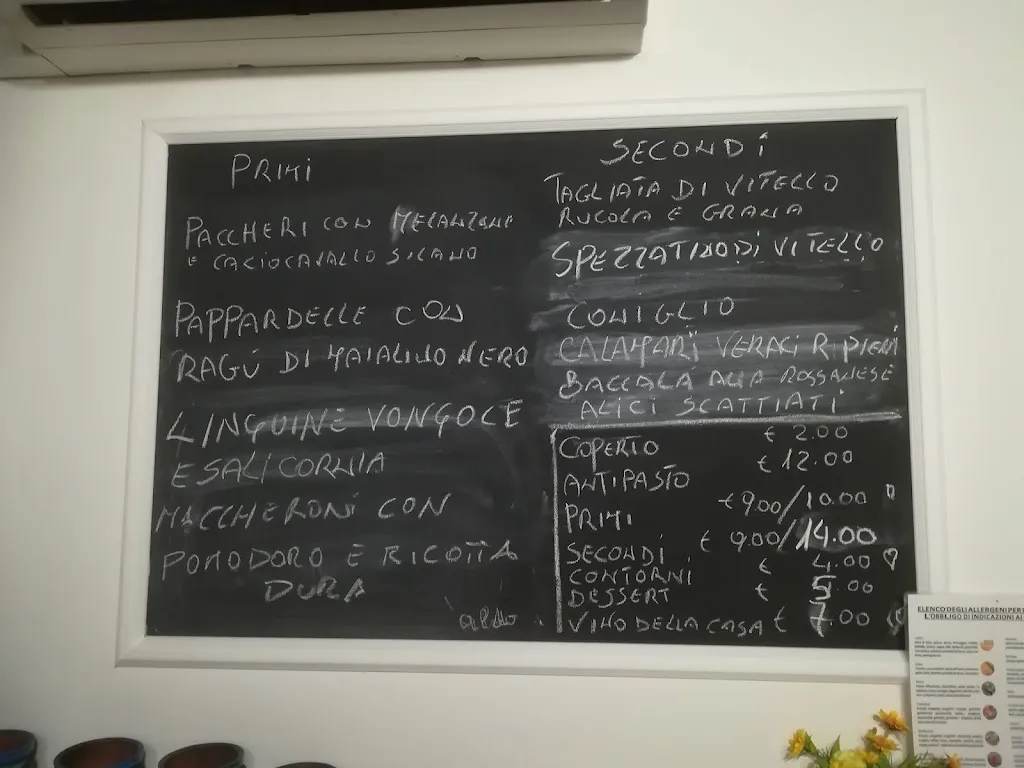 PRIMI
PACCHERI CON MELANZANE
E CACIOCAVALLO SILANO
PAPPARDELLE CON
RAGÚ DI MAIALINO NERO
LINGUINE VONGOLE
E SALICORNIA
MACCHERONI CON
POMODORO E RICOTTA
DURA
SECONDI
TAGLIATA DI VITELLO
RUCOLA E GRANA
SPEZZATINO DI VITELLO
CONIGLIO
CALAMARI VERACI RIPIENI
BACCALÁ ALLA ROSSANESE
ALICI SCATTIATI
COPERTO € 2.00
ANTIPASTO € 12.00
PRIMI € 9.00/10.00
SECONDI € 9.00/14.00
CONTORNI € 4.00
DESSERT € 5.00
VINO DELLA CASA € 7.00
ELENCO DEGLI ALLERGENI PER
L'OBBLIGO DI INDICAZIONI AI